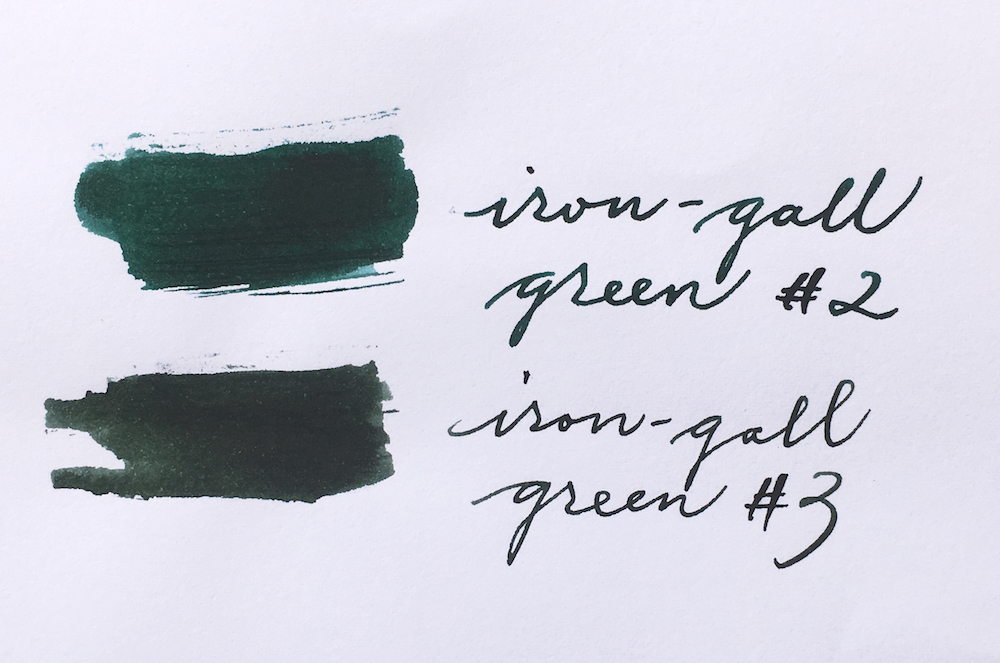 iron-gall
green #2
iron-gall
green #3